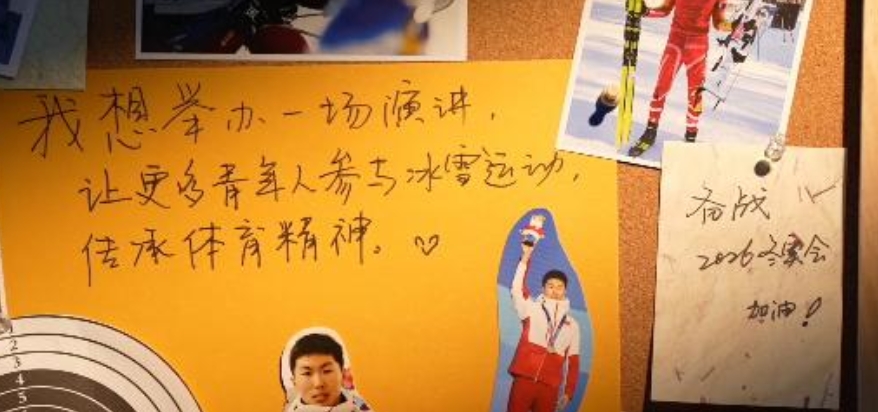 我想举办一场演讲，
让更多青年人参与冰雪运动，
传承体育精神。♡
备战
2026冬奥会
加油！
1
2
3
4
5